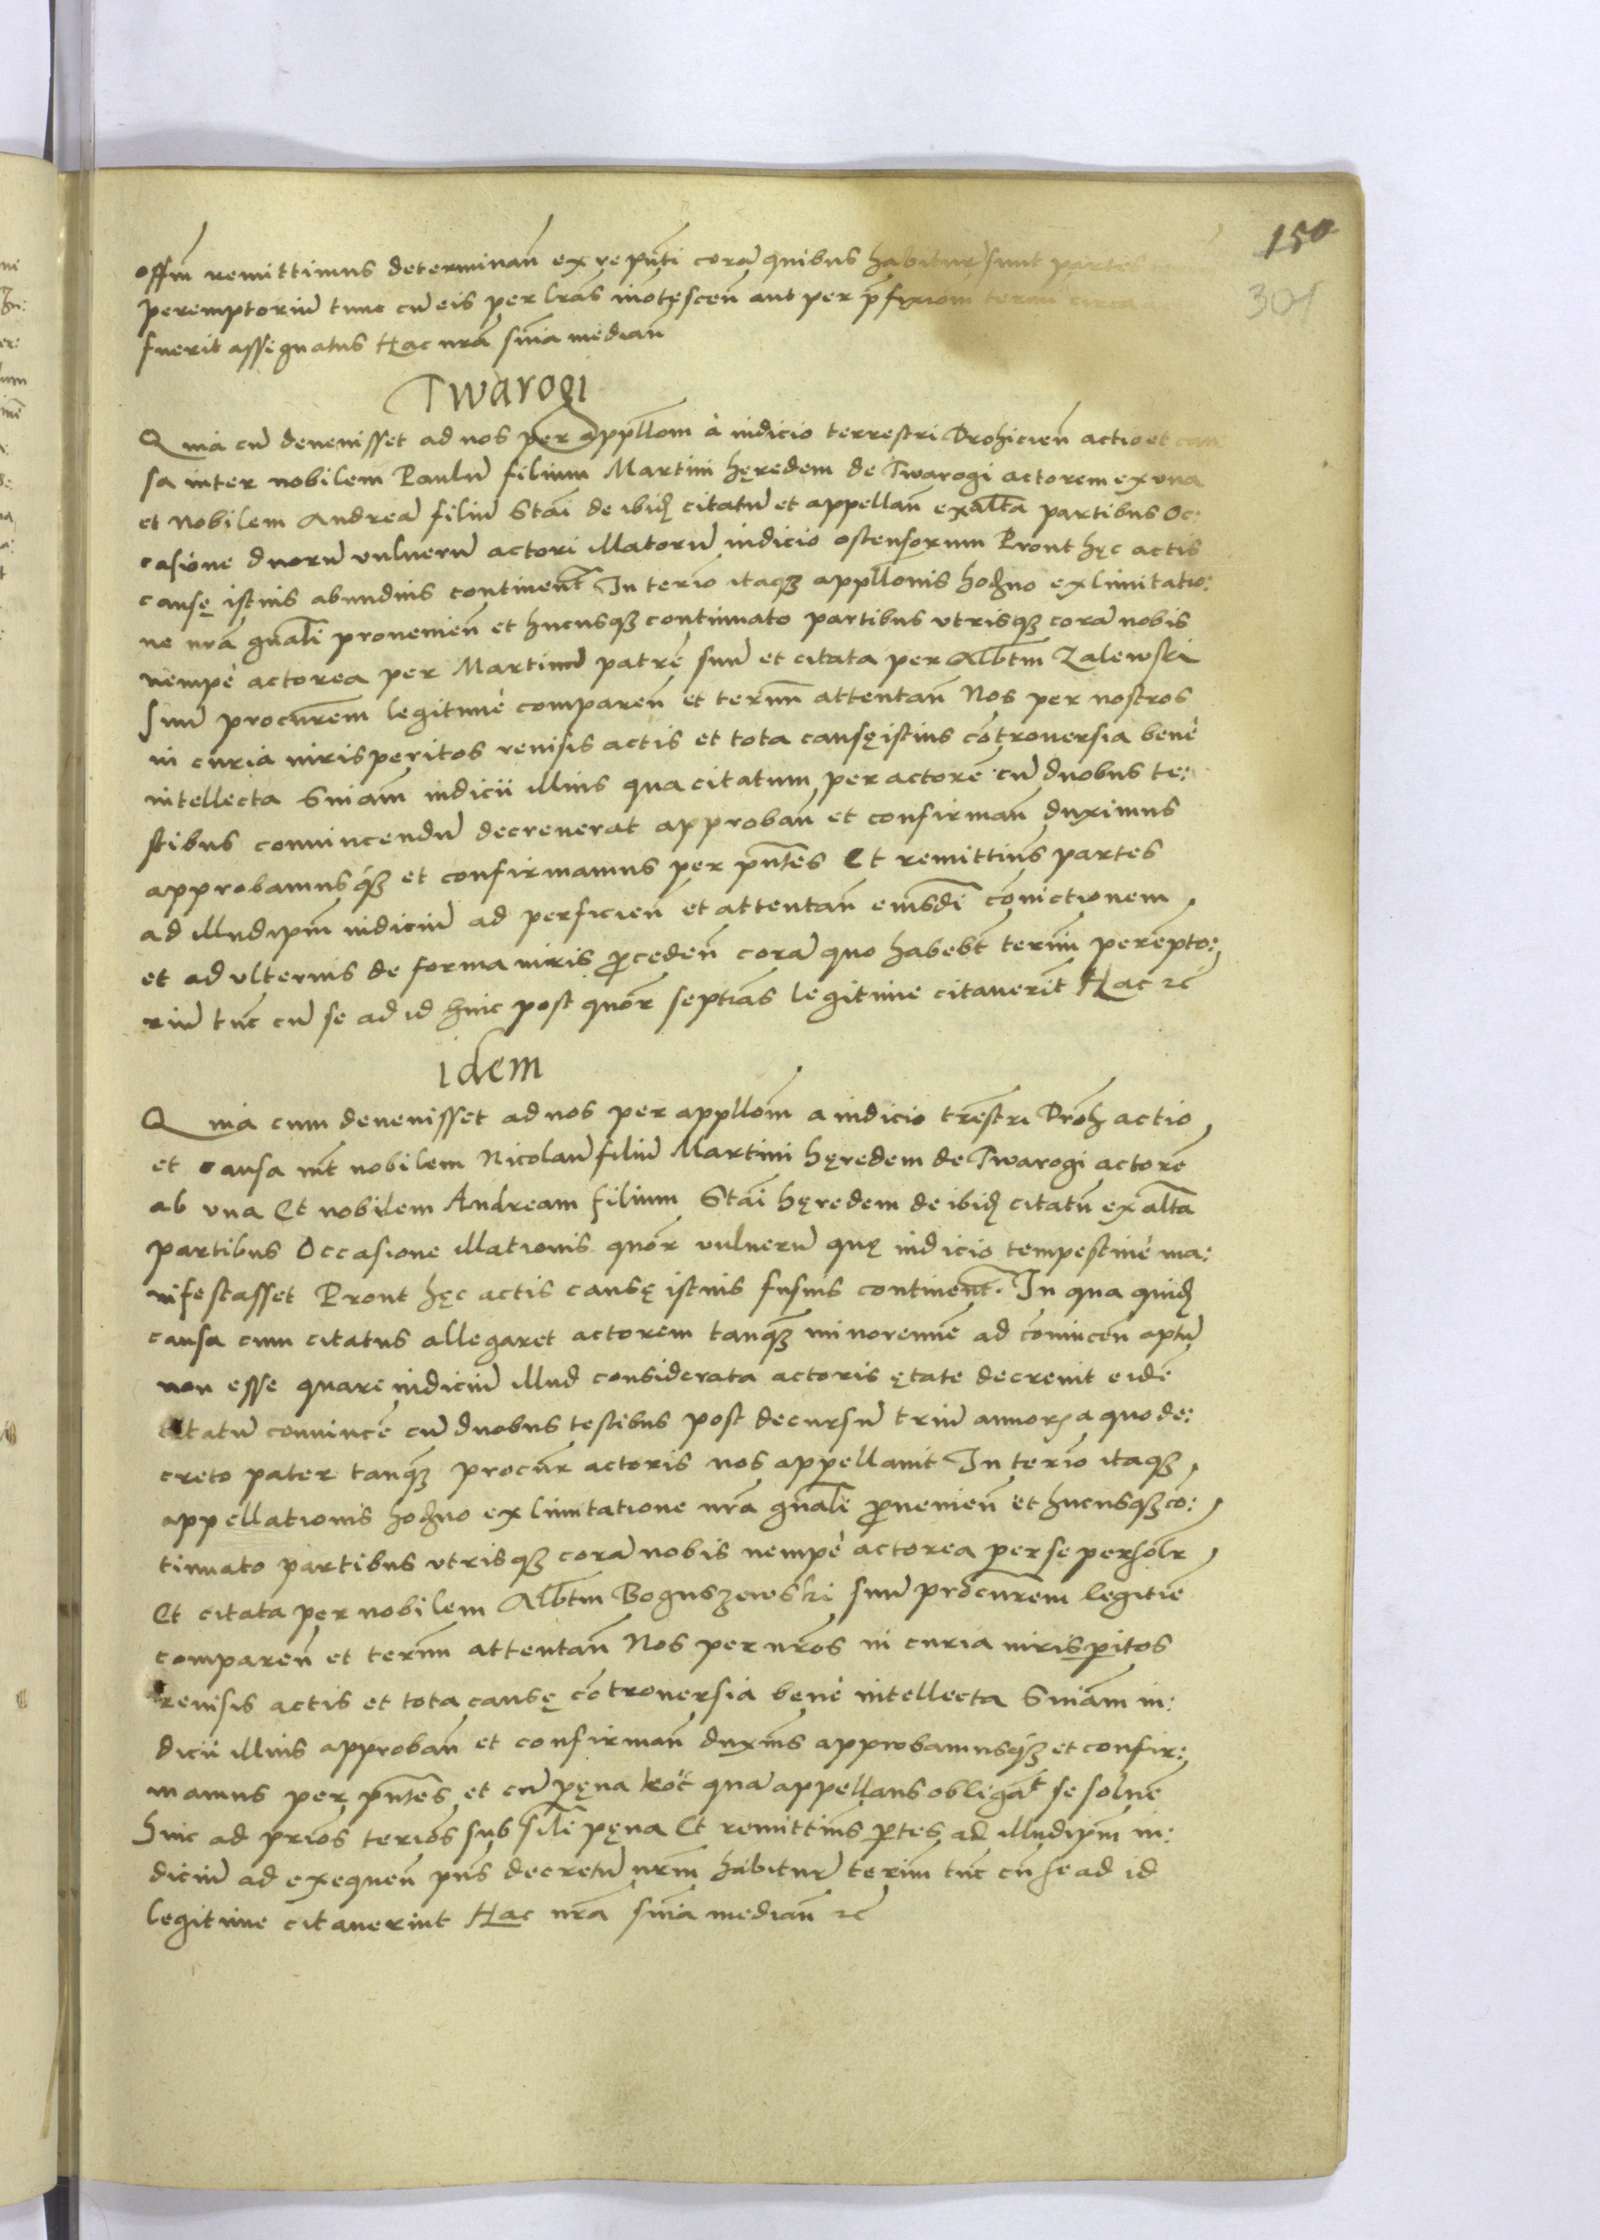 150
301
offm̄ remittimus determinan̄ ex re pn̄ti corā quibus habitur̄ sunt partes
peremptoriū tunc cū eis per lrās inotęscen̄ aut per p̄fixiōm termi
fuerit assignatus Hac nrā sn̄ia median̄
Twarogi
Quia cū devenisset ad nos per appllōm à iudicio terrestri Drohicien̄ actio et cau
sa inter nobilem Paulū filium Martini hęredem de Twarogi actorem ex una
et Nobilem Andreā filiū Stāi de ibid̨ citatū et appellan̄ ex altā partibus Oc:
casione duorū vulnerū actori illatorū iudicio ostensorum Prout hęc actis
causę istius abundius continent̄ In teriō itaqз appllōnis hod̨rno ex limitatio:
ne nrā gn̄ali provenien̄ et hucusqз continuato partibus utrisqз corā nobis
nempè actorea per Martinū patrē suū et citata per Albt̄m Zalewski
suū procur̄em legitimè comparen̄ et termn̄ attentan̄ Nos per nostros
in curia iurisperitos revisis actis et tota causę istius cōtroversia benè
intellecta Sn̄iam iudicii illius qua citatum per actorē cū duobus te:
stibus convincendū decreverat approban̄ et confirman̄ duximus
approbamusqз et confirmamus per pn̄tes Et remittim̄s partes
ad illud ip̄m iudiciū ad perficien̄ et attentan̄ eiusdī cōvictionem
et ad ulterius de forma iuris p̄ceden̄ corā quo habebt̄ termī perēpto:
riū tn̄c cū se ad id hinc post quor̄ septiās legitime citaverit̄ Hac rc̄
idem
Quia cum devenisset ad nos per appllōm a iudicio tr̄estri Droh̄ actio
et causa int̄ nobilem Nicolaū filiū Martini hęredem de Twarogi actorē
ab una Et nobilem Andream filium Stāi hęredem de ibid̨ citatū ex altā
partibus Occasione illationis quor̄ vulnerū quę iudicio tempestivè ma:
nifestasset Prout hęc actis causę istius fusius continent̄. In qua quid̨
causa cum citatus allegaret actorem tanqз minorennē ad cōvincen̄ aptū
non esse quare iudiciū illud considerata actoris ętate decrevit eidē
citatū convincē cū duobus testibus post decursū triū annorꝝ a quo de:
creto pater tanqз procur̄ actoris nos appellavit In teriō itaqз
appellationis hod̨rno ex limitatione nrā gn̄ali p̄venien̄ et hucusqз cō:
tinuato partibus utrisqз corā nobis nempè actorea per se persolr̄
Et citata per nobilem Albt̄m Boguszewski suū procur̄em legitiē
comparen̄ et termn̄ attentan̄ Nos per nrōs in curia iurisp̱itos
revisis actis et tota causę cōtroversia benè intellecta Sn̄iam iu:
dicii illius approban̄ et confirman̄ duxim̄s approbamusqз et confir:
mamus per pn̄tes et cū pęna quā appellans obligat̄ se solvē
hinc ad priōs teriōs sub silē pęna Et remittim̄s p̱tes ad illud ip̄m iu:
diciū ad exequen̄ pn̄s decretū nrm̄ habitur̄ termī tn̄c cū se ad id
legitime citaverint Hac nrā sn̄ia median̄ rc̄